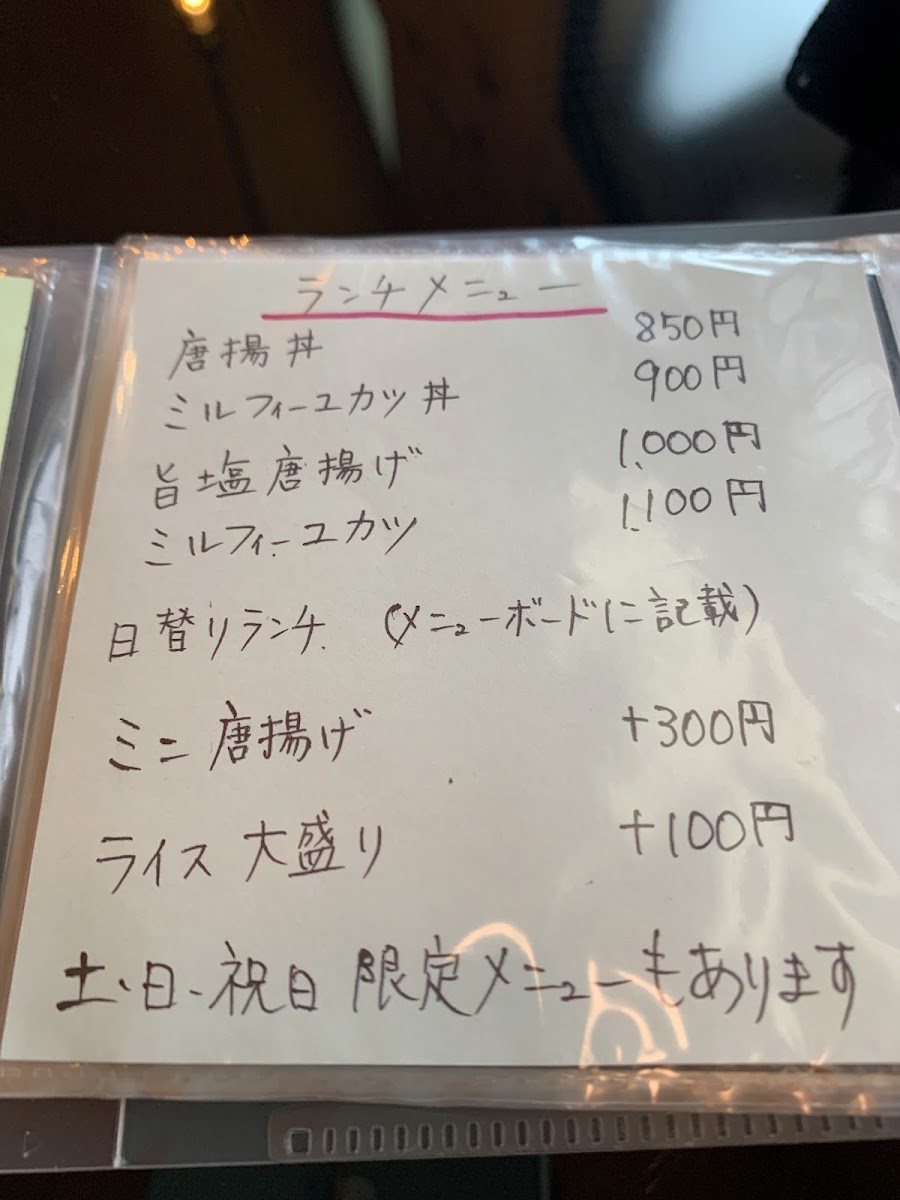 ランチメニュー
唐揚丼 850円
ミルフィーユカツ丼 900円
旨塩唐揚げ 1,000円
ミルフィーユカツ 1,100円
日替りランチ (メニューボードに記載)
ミニ唐揚げ +300円
ライス大盛り +100円
土・日・祝日 限定メニューもあります